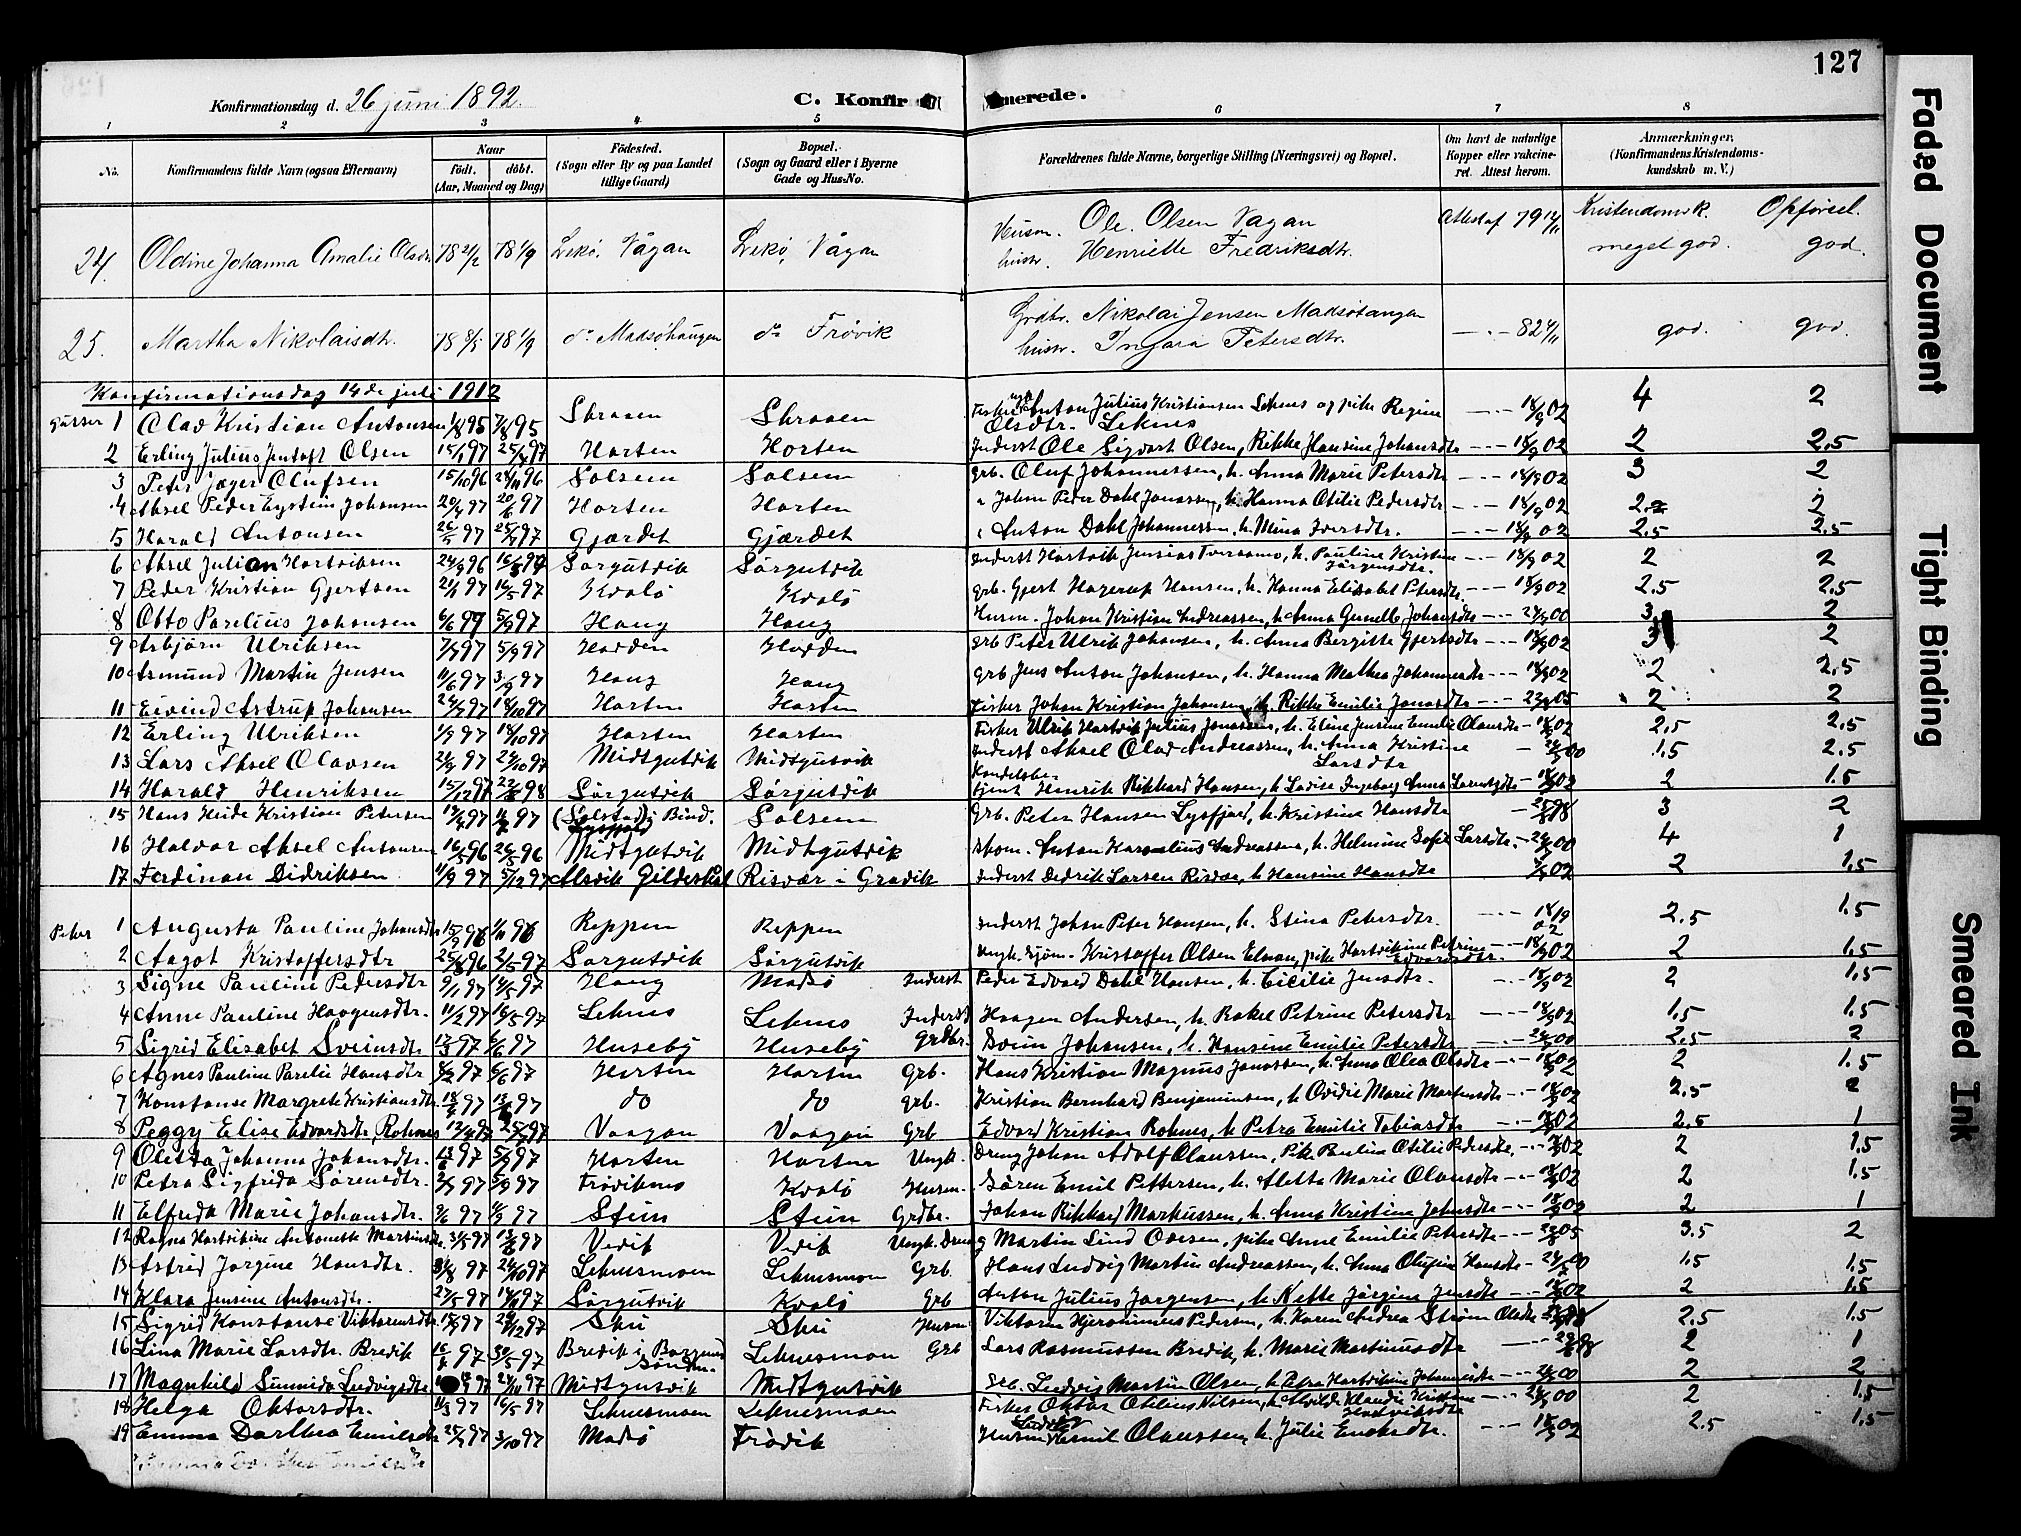 127
Konfirmationsdag d. 26 juni 1892.
C. Konfirmerede.
1 2 3 4 5 6 7 8
No. Konfirmandens fulde Navn (ogsaa Efternavn)
Naar født. døbt. (Aar, Maaned og Dag)
Fødested. (Sogn eller By og paa Landet tillige Gaard)
Bopæl. (Sogn og Gaard eller i Byerne Gade og Hus-No.
Forældrenes fulde Navne, borgerlige Stilling (Næringsvei) og Bopæl.
Om havt de naturlige Kopper eller vakcineret. Attest herom.
Anmærkninger, (Konfirmandens Kristendomskundskab m. V.)
Kristendomsk. Opførsel.
24. Oldine Johanna Amalie Olsdr. 78 21/2 78 1/9 Lekø, Vågan Lekø, Vågan Husm. Ole Olsen Vagan hustr. Henriette Fredriksdtr. Attest af 79 12/11 meget god. god.
25. Martha Nikolaisdtr. 78 8/5 78 1/9 do Madsøhaugen do Frøvik Grdbr. Nikolai Jensen Madsøtangen hustr. Ingara Petersdtr. —.— 82 4/11 god. god.
Konfirmationsdag 14de juli 1912
Gutter 1 Olav Kristian Antonsen 1/8 95 7/8 95 Skraaen Skraaen Fisker Anton Julius Kristiansen Leknes og pike Regine Olsdtr. Leknes 18/9 02 4 2
2 Erling Julius Jentoft Olsen 15/1 97 25/4 97 Horten Horten Inderst Ole Sigvart Olsen, Rikke Hansine Johansdtr 18/9 02 2 2.5
3 Peter Jæger Olufsen 15/10 96 Solsem Solsem Grb. Oluf Johannessen, h. Anna Marie Petersdtr 18/9 02 3 2
4 Aksel Peder Eystein Johansen 20/4 97 20/6 97 Horten Horten " Johan Peder Dahl Jonassen, h. Hanna Otilie Pedersdtr 18/9 02 2
5 Harald Antonsen 97 97 Gjærdet Gjærdet " Anton Dahl Johannessen h. Mina Iversdtr. 18/9 02 2.5 2.5
6 Aksel Julian Hartviksen 96 97 Sørgutvik Sørgutvik Inderst Hartvik Jensias h. Pauline Kristine Jørgensdtr. 18/9 02 2 2
7 Peder Kristian Gjertsen 97 16/5 97 Kvalø Kvalø Grb. Gjert Hagerup Hansen, h. Hanna Elisabet Petersdtr. 18/9 02 2.5 2.5
8 Otto Parelius Johansen 5/9 97 Haug Haug Husm. Johan Kristian Andreassen, h. Anna Johansdtr 00 3 2
9 Asbjørn Ulriksen 97 5/9 97 Hodden Hodden Grb Peter Ulrik Johansen, h. Anna Bergitte Gjertsdtr 18/9 02 3 2
10 Asmund Martin Jensen 11/6 97 97 Haug Haug Grb Jens Anton Johansen, h. Hanna Mathea 18/9 02 2 2.5
11 Eivind Astrup Johansen 97 18/10 97 Horten Horten Fisker Johan Kristian Johansen h. Rikke Emilie Jonasdtr 05 2 2
12 Erling Ulriksen 97 18/10 97 Horten Horten Fisker Ulrik Hartvik Julius Jonassen, h. Eline Jensine Emilie Olausdtr 02 2.5 2.5
13 Lars Aksel Olavsen 97 24/10 97 Midtgutvik Midtgutvik Inderst Aksel Olav Andreassen, h. Anna Kristine Larsdtr 00 1.5 2.5
14 Harald Henriksen 15/12 97 98 Sørgutvik Sørgutvik Handelsbetjent Henrik Rikhard Hansen, h. Lovise Ingeborg Anna 02 2 1.5
15 Hans Heide Kristian Petersen 97 97 (Solstad) i Bind. Solsem Grb. Peter Hansen Lysfjord, h. Kristine Hansdtr 98 3 2
16 Halvar Aksel Antonsen 16/5 96 96 Midtgutvik Midtgutvik Skom. Anton Karnelius Andreassen, h. Helmine Sofie Larsdtr. 00 4 1
17 Ferdinan Didriksen 11/9 97 5/12 97 Alsvik Gildeskal Risvær i Gravik Inderst Dedrik Larsen Risvær, h. Hansine Hansdtr 02 2 1.5
Piker 1 Augusta Pauline Johansdtr 15/9 96 1/11 96 Reppen Reppen Inderst Johan Peter Hansen, h. Stina Petersdtr. 18/9 02 2.5 1.5
2 Aagot Kristoffersdtr 96 2/5 97 Sørgutvik Sørgutvik Ungk. sjøm. Kristoffer Olsen pike Hartvikine Petrine Edvardsdtr. 18/9 02 2 1.5
3 Signe Pauline Pedersdtr 9/1 97 97 Haug Madsø Inderst Peder Edvard Dahl Hansen, h. Cicilie Jensdtr. 18/9 02 2 1.5
4 Anne Pauline Haagensdtr. 11/2 97 16/5 97 Leknes Leknes Inderst Haagen Andersen, h. Rakel Petrine Petersdtr 18/9 02 1.5 1.5
5 Sigrid Elisabet Sveinsdtr 97 97 Huseby Huseby Grdbr. Svein Johansen, h. Hansine Emilie Petersdtr 00 2.5 2
6 Agnes Pauline Parelie Hansdtr 97 97 Horten Horten Grb. Hans Kristian Magnus Jonassen, h. Anna Olea Olsdtr 02 2 1.5
7 Konstanse Margrete Kristiansdtr. 97 97 do do Grb. Kristian Bernhard Benjaminsen, h. Ovidie Marie Martensdtr 02 2.5 2
8 Peggy Elise Edvardsdtr Rohnes 97 97 Vaagan Vaagan Grb Edvard Kristian Rohnes, h. Petra Emilie Tobiasdtr 02 2.5 1
9 Oletta Johanna Johansdtr. 97 97 Horten Horten Ungk. Dreng Johan Adolf Olaussen, Pik. Paulina Otilie Pedersdtr, 02 2 1.5
10 Petra Sigfrida Sørensdtr. 97 5/9 97 Frøviknes Kvalø Husm. Søren Emil Pettersen, h. Aletta Marie Olausdtr 02 2 1.5
11 Elfrida Marie Johansdtr. 97 97 Stein Stein Grdbr. Johan Rikhard Markussen, h. Anna Kristine Johnsdtr 02 2 1
12 Ragna Hartvikine Antonette Martinsdtr. 97 97 Vedik Vedik Ungk. Dreng Martin Lind Ovesen, pike Anne Emilie Petersdtr 05 3.5 2
13 Astrid Jørgine Hansdtr. 97 24/10 97 Leknesmoen Leknesmoen Grb. Hans Ludvig Martin Andreassen, h. Anna Olufine Hansdtr 00 1.5 1.5
14 Klara Jensine Antonsdtr. 27/5 97 97 Sørgutvik Kvalø Grb Anton Julius Jørgensen, h. Kette Jørgine Jensdtr 02 2 1.5
15 Sigrid Konstanse Viktorinsdtr. 97 97 Skei Skei Husm Viktorin Hjeronimus Pedersen, h. Karen Andrea Strøm Olsdtr 98 2.5 1.5
16 Lina Marie Larsdtr. Bredik 97 30/5 97 Bredik i Leknesmoen Grb Lars Rasmussen Bredik, h. Marie Martinusdtr 98 2 1
17 Magnhild Sunniva Ludvigsdtr 97 97 Midtgutvik Midtgutvik Grb. Ludvig Martin Olsen, h. Petra Hartvikine 00 2 2
18 Helga Oktorsdtr. 97 16/5 97 Leknesmoen Leknesmoen Fisker Oktor Otelius Nilsen, h. Alvilde Klaudie Kristine Hartviksdtr 00 2 1.5
19 Emma Dorthea Emilsdtr 97 3/10 97 Madsø Frøvik Husm Emil Olaussen, h. Julie 02 2.5 1.5
Faded Document
Tight Binding
Smeared Ink